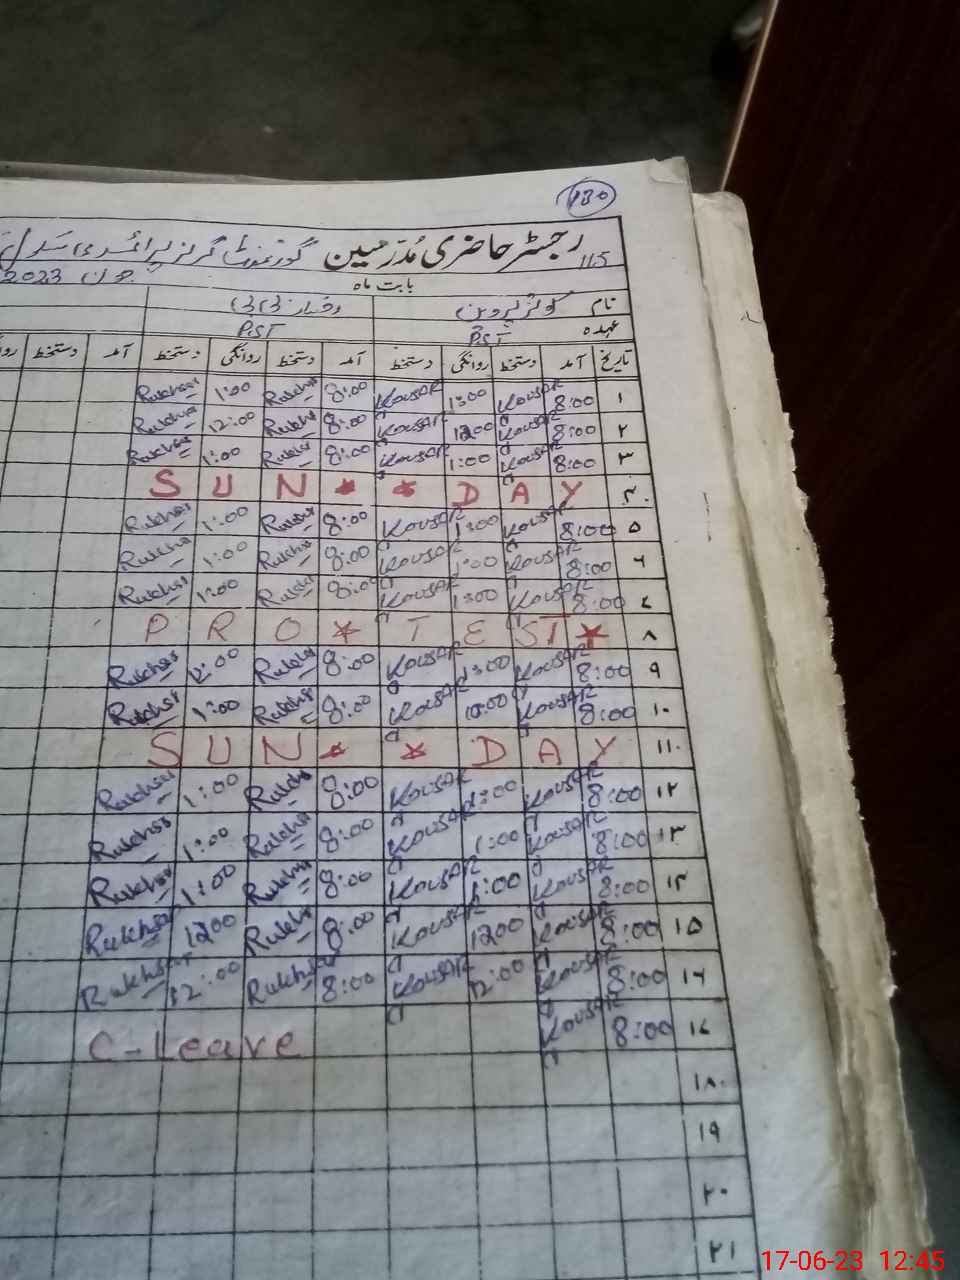 130
115 رجسٹر حاضری مدرسین گورنمنٹ گرلز پرائمری سکول
بابت ماہ جون 2023
نام کوثر پروین
عہدہ PST PST
تاریخ آمد دستخط روانگی دستخط آمد دستخط روانگی دستخط آمد دستخط
۱ 8:00 Kousar 1:00 Kousar 8:00 Rukhsa 1:00 Rukhsa
۲ 8:00 Kousar 1200 Kousar 8:00 Rukhsa 12:00 Rukhsa
۳ 8:00 Kousar 1:00 Kousar 8:00 Rukhsa 1:00 Rukhsa
۴ SUN * * DAY
۵ 8:00 Kousar 1:00 Kousar 8:00 Rukhsa 1:00 Rukhsa
۶ 8:00 Kousar 1:00 Kousar 8:00 Rukhsa 1:00 Rukhsa
۷ 8:00 Kousar 1:00 Kousar 8:00 Rukhsa 1:00 Rukhsa
۸ PRO * TEST *
۹ 8:00 Kousar 1:00 Kousar 8:00 Rukhsa 12:00 Rukhsa
۱۰ 8:00 Kousar Kousar 8:00 Rukhsa 1:00 Rukhsa
۱۱ SUN * * DAY
۱۲ 8:00 Kousar 1:00 Kousar 8:00 Rukhsa 1:00 Rukhsa
۱۳ 8:00 Kousar 1:00 Kousar 8:00 Rukhsa 1:00 Rukhsa
۱۴ 8:00 Kousar 1:00 Kousar 8:00 Rukhsa 1:00 Rukhsa
۱۵ 8:00 Kousar 1200 Kousar 8:00 Rukhsa 1200 Rukhsa
۱۶ 8:00 Kousar 12:00 Kousar 8:00 Rukhsa 12:00 Rukhsa
۱۷ 8:00 Kousar C-Leave
۱۸
۱۹
۲۰
۲۱
17-06-23 12:45